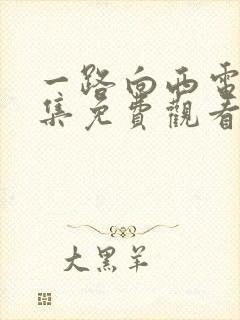 一路向西電
集免費觀看
大黑羊